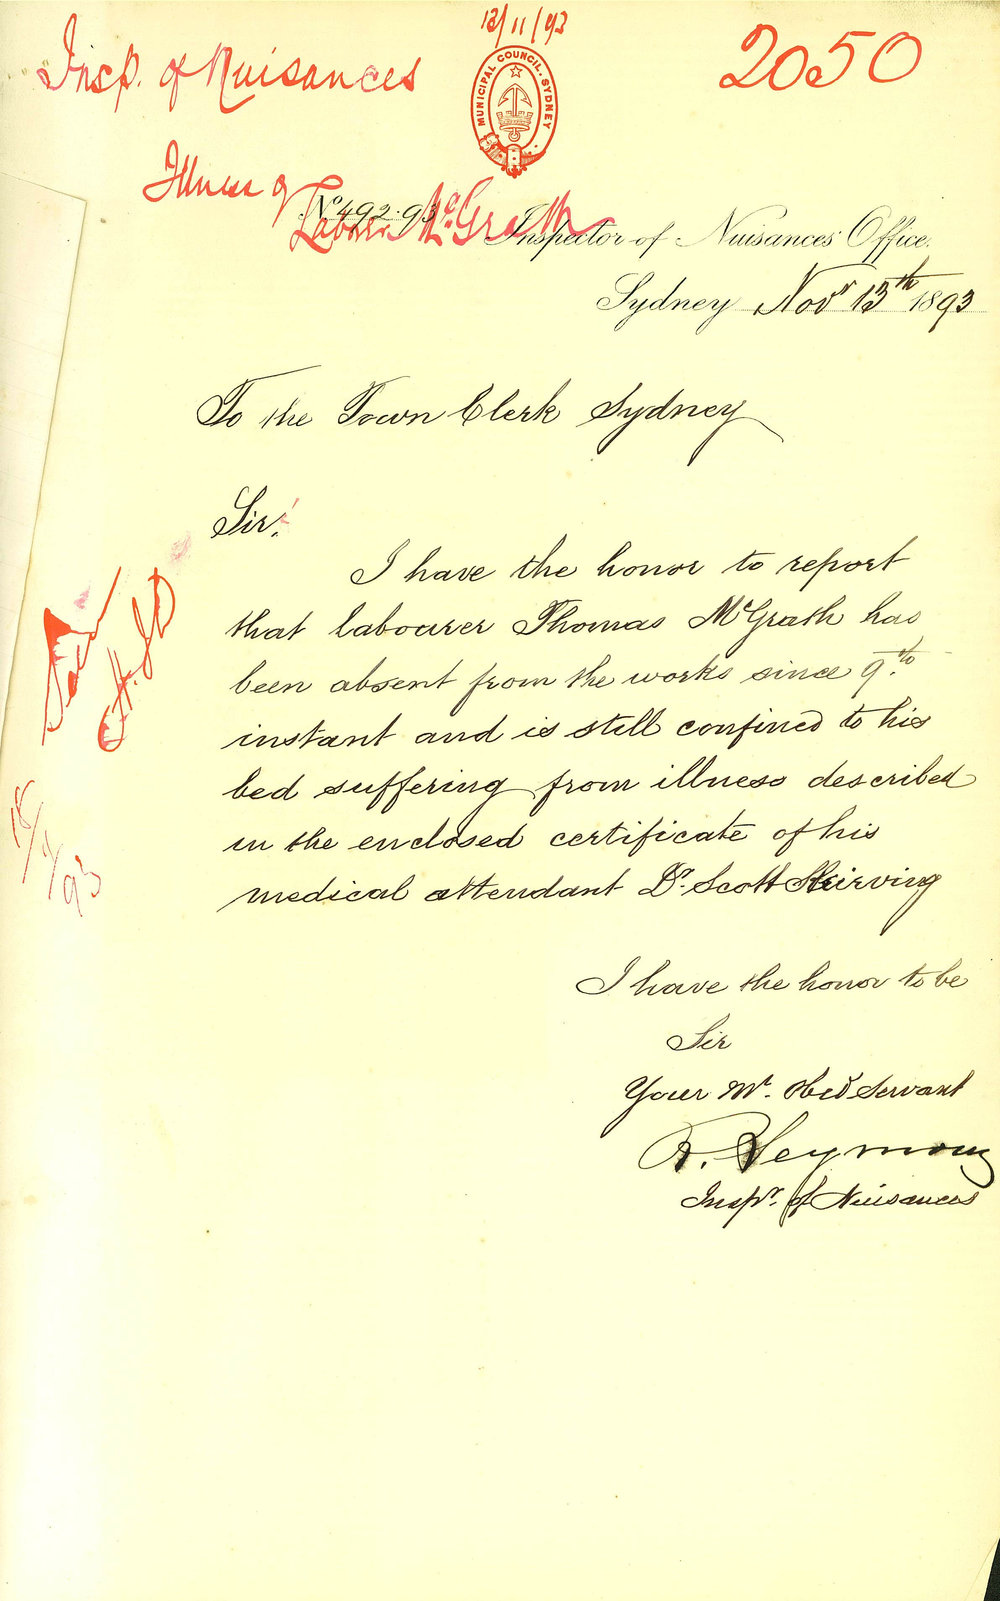 13/11/93
2050
Insp. of Nuisances
MUNICIPAL COUNCIL. SYDNEY
Illness of
Labrer McGrath
No 492.93
Inspector of Nuisances' Office.
Sydney Novr 13th 1893
To the Town Clerk Sydney
Sir,
I have the honor to report
that labourer Thomas McGrath has
been absent from the works since 9th
instant and is still confined to his
bed suffering from illness described
in the enclosed certificate of his
medical attendant Dr. Scott Skirving
I have the honor to be
Sir
Your Mt. Obed Servant
R. Seymour
Inspr. of Nuisances
93